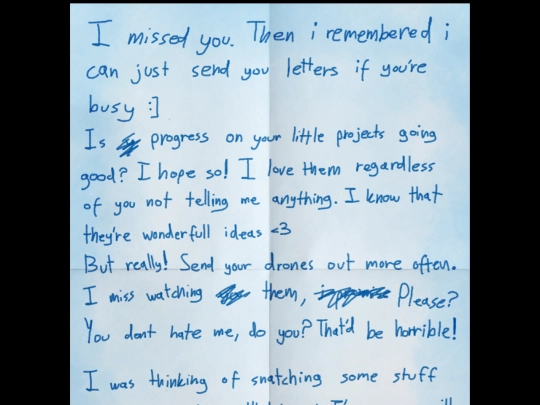 I missed you. Then i remembered i
can just send you letters if you're
busy :]
Is progress on your little projects going
good? I hope so! I love them regardless
of you not telling me anything. I know that
they're wonderfull ideas <3
But really! Send your drones out more often.
I miss watching them, Please?
You dont hate me, do you? That'd be horrible!
I was thinking of snatching some stuff